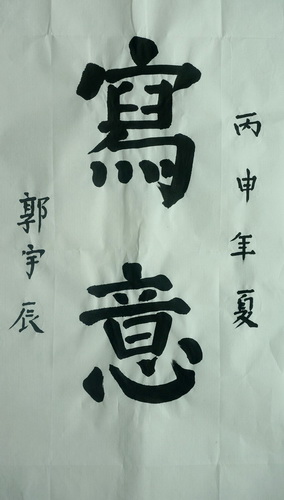 丙申年夏
寫意
郭宇辰